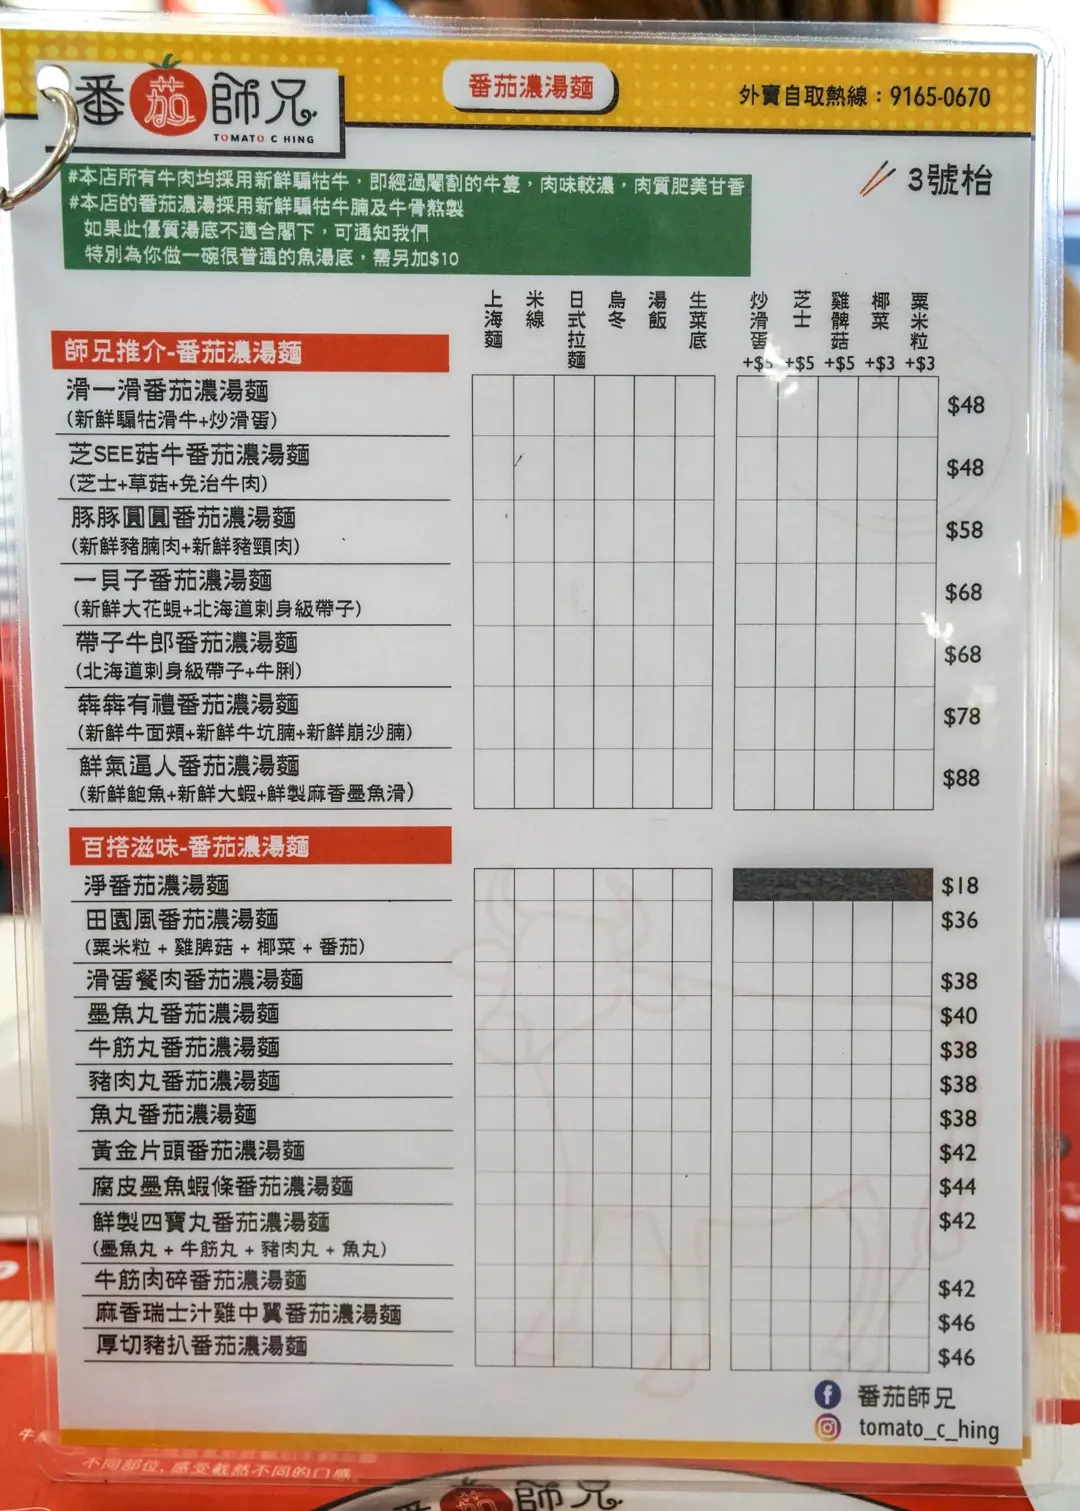 番茄師兄
TOMATO C HING
番茄濃湯麵
外賣自取熱線：9165-0670
3號枱
#本店所有牛肉均採用新鮮騸牯牛，即經過閹割的牛隻，肉味較濃，肉質肥美甘香
#本店的番茄濃湯採用新鮮騸牯牛腩及牛骨熬製
如果此優質湯底不適合閣下，可通知我們
特別為你做一碗很普通的魚湯底，需另加$10
上海麵 米線 日式拉麵 烏冬 湯飯 生菜底 炒滑蛋+$5 芝士+$5 雞髀菇+$5 椰菜+$3 粟米粒+$3
師兄推介-番茄濃湯麵
滑一滑番茄濃湯麵 $48
(新鮮騸牯滑牛+炒滑蛋)
芝SEE菇牛番茄濃湯麵 $48
(芝士+草菇+免治牛肉)
豚豚圓圓番茄濃湯麵 $58
(新鮮豬腩肉+新鮮豬頸肉)
一貝子番茄濃湯麵 $68
(新鮮大花蜆+北海道刺身級帶子)
帶子牛郎番茄濃湯麵 $68
(北海道刺身級帶子+牛脷)
犇犇有禮番茄濃湯麵 $78
(新鮮牛面頰+新鮮牛坑腩+新鮮崩沙腩)
鮮氣逼人番茄濃湯麵 $88
(新鮮鮑魚+新鮮大蝦+鮮製麻香墨魚滑)
百搭滋味-番茄濃湯麵
淨番茄濃湯麵 $18
田園風番茄濃湯麵 $36
(粟米粒 + 雞脾菇 + 椰菜 + 番茄)
滑蛋餐肉番茄濃湯麵 $38
墨魚丸番茄濃湯麵 $40
牛筋丸番茄濃湯麵 $38
豬肉丸番茄濃湯麵 $38
魚丸番茄濃湯麵 $38
黃金片頭番茄濃湯麵 $42
腐皮墨魚蝦條番茄濃湯麵 $44
鮮製四寶丸番茄濃湯麵 $42
(墨魚丸 + 牛筋丸 + 豬肉丸 + 魚丸)
牛筋肉碎番茄濃湯麵 $42
麻香瑞士汁雞中翼番茄濃湯麵 $46
厚切豬扒番茄濃湯麵 $46
番茄師兄
tomato_c_hing
不同部位,感受截然不同的口感
番茄師兄